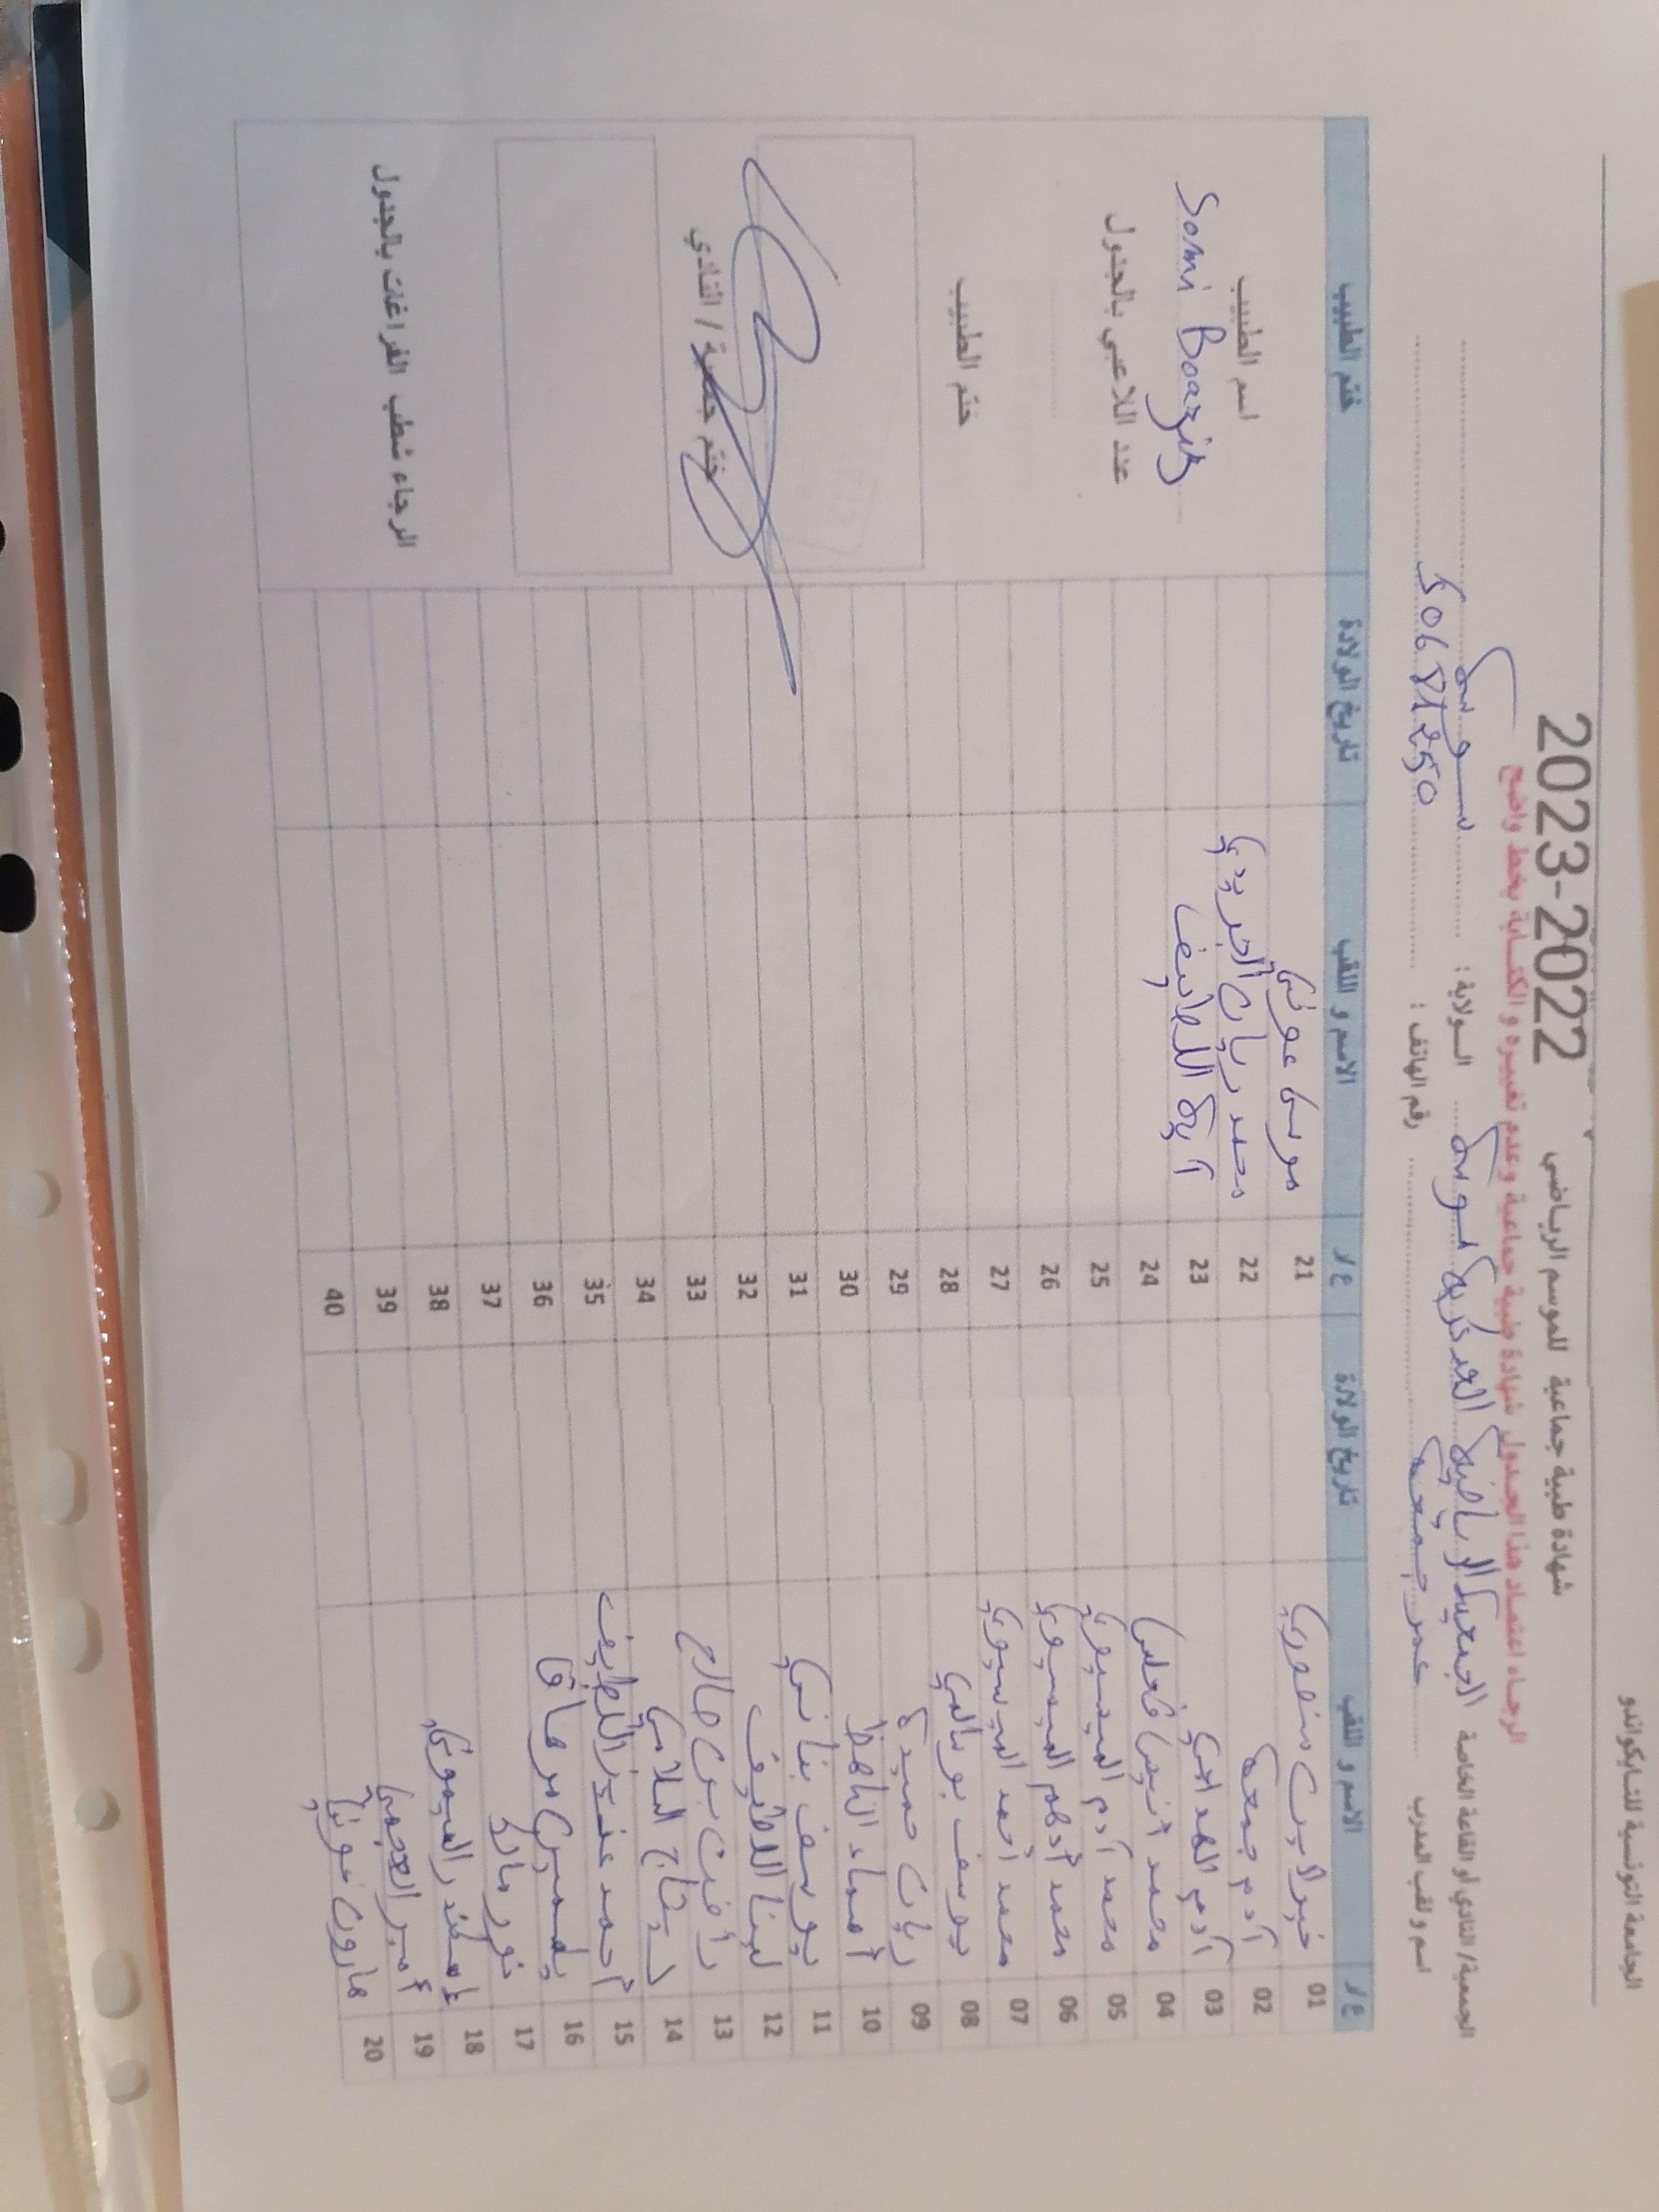 الجامعة التونسية للتايكواندو
شهادة طبية جماعية للموسم الرياضي 2022-2023
الرجاء اعتماد هذا الجدول شهادة طبية جماعية وعدم تغييره و الكتابة بخط واضح
الجمعية/ النادي أو القاعة الخاصة الجمعية الرياضية العسكرية بسوسة الولاية : سوسة
اسم و لقب المدرب عمر جمعة رقم الهاتف : 50681250
ع/ر الاسم و اللقب تاريخ الولادة ع/ر الاسم و اللقب تاريخ الولادة ختم الطبيب
01 منصوري 21 موسى عوني
02 آدم جمعة 22 محمد ريان الجريدي
03 آدم 23 آية اللطيف
04 محمد أنيس 24
05 محمد آدم الميسوري 25
06 محمد أدهم الميسوري 26
07 محمد أحمد الميسوري 27
08 يوسف بوسالمي 28
09 ريان حميدة 29
10 30
11 يوسف بناني 31
12 لينا اللطيف 32
13 رأفت بن صالح 33
14 السلامي 34
15 أحمد عزيز اللطيف 35
16 36
17 نور 37
18 إسكندر الميموني 38
19 أمير العجمي 39
20 40
اسم الطبيب
Sami Bouaziz
عدد اللاعبي بالجدول
ختم الطبيب
ختم جمعية / النادي
الرجاء شطب الفراغات بالجدول